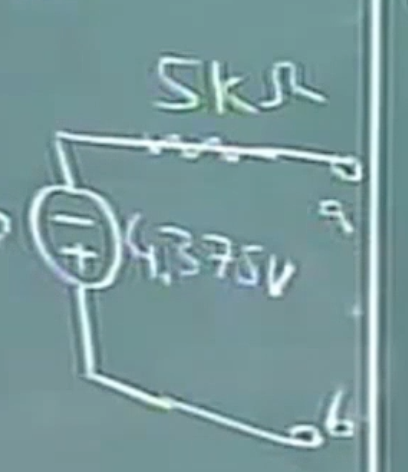 5kΩ
a
4.375V
b